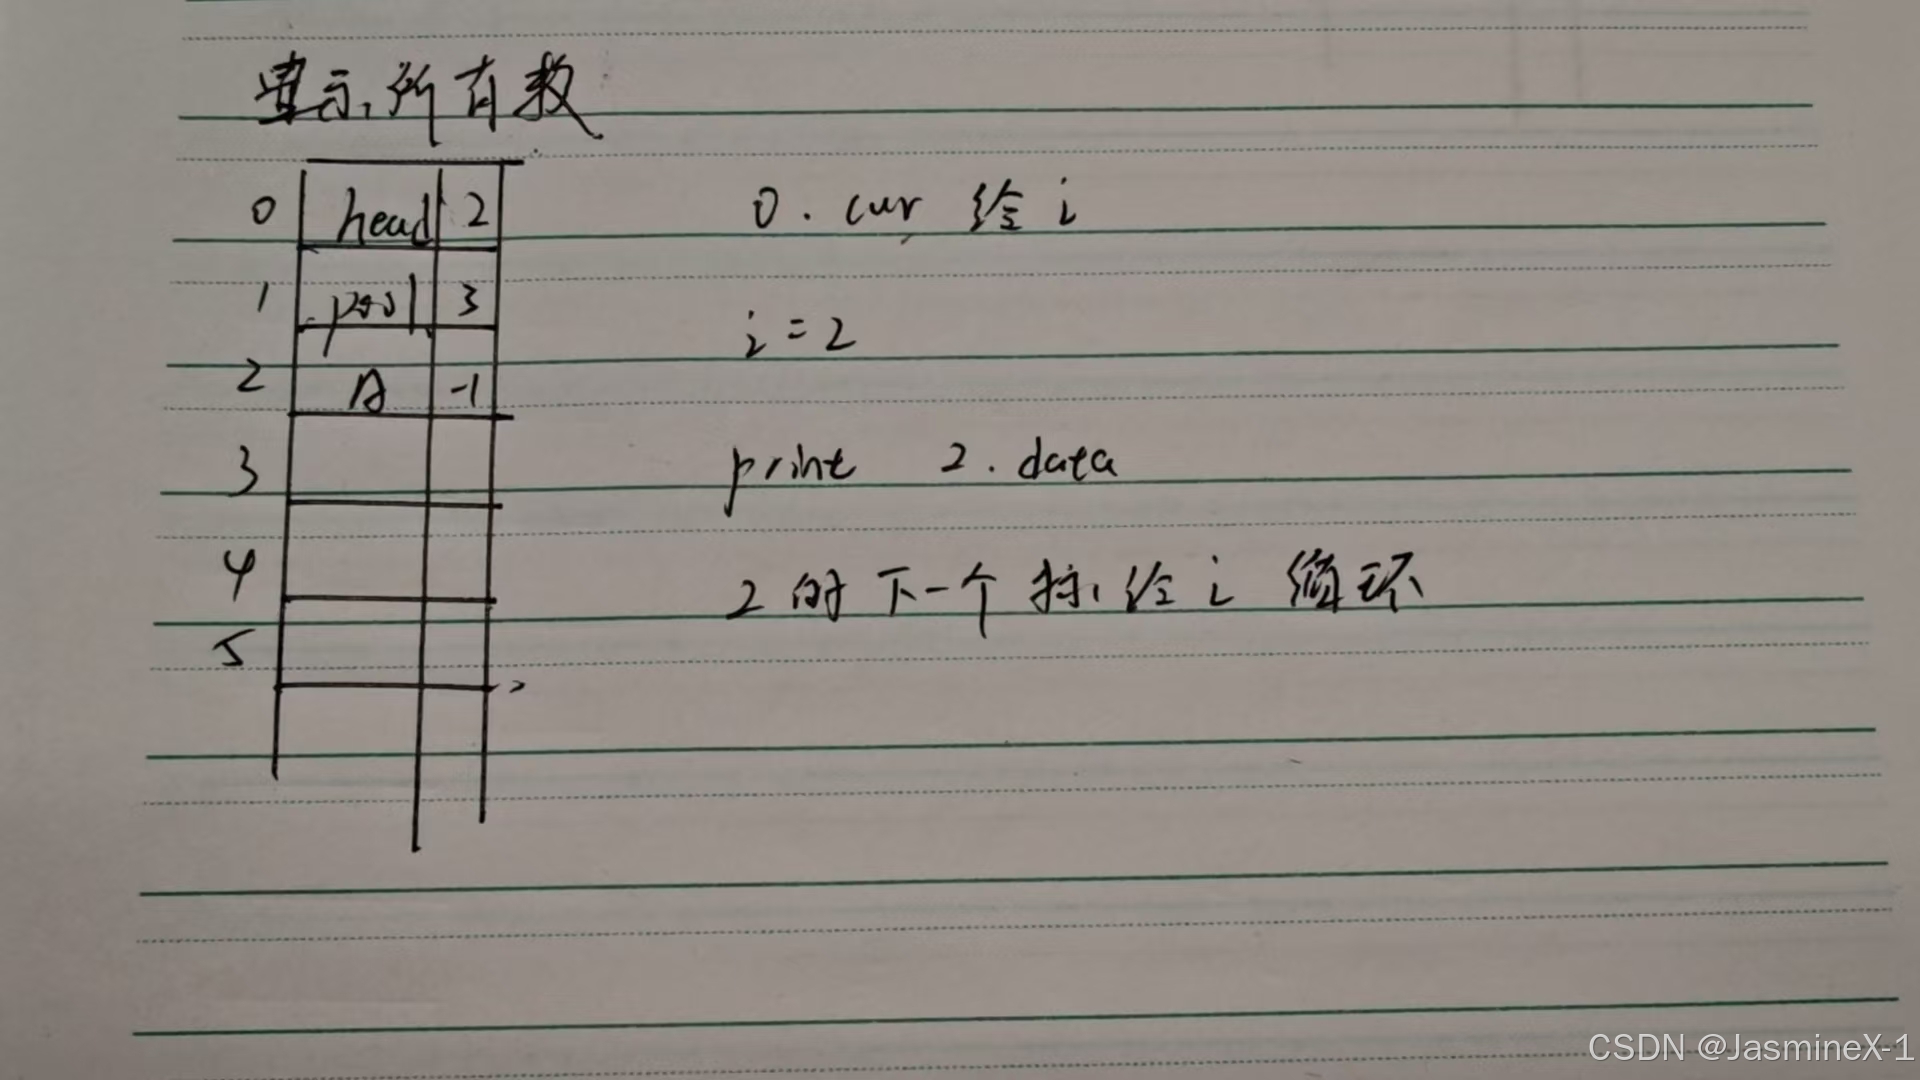 显示所有数
0 head 2
0.cur 给 i
1 pool 3
i=2
2 A -1
3
print 2.data
4
2的下一个标给i 循环
5
CSDN @JasmineX-1